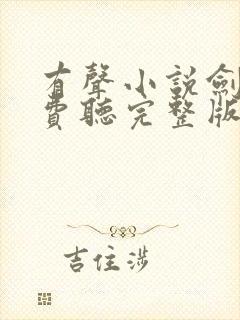 有聲小說劍
費聽完整版
吉住涉